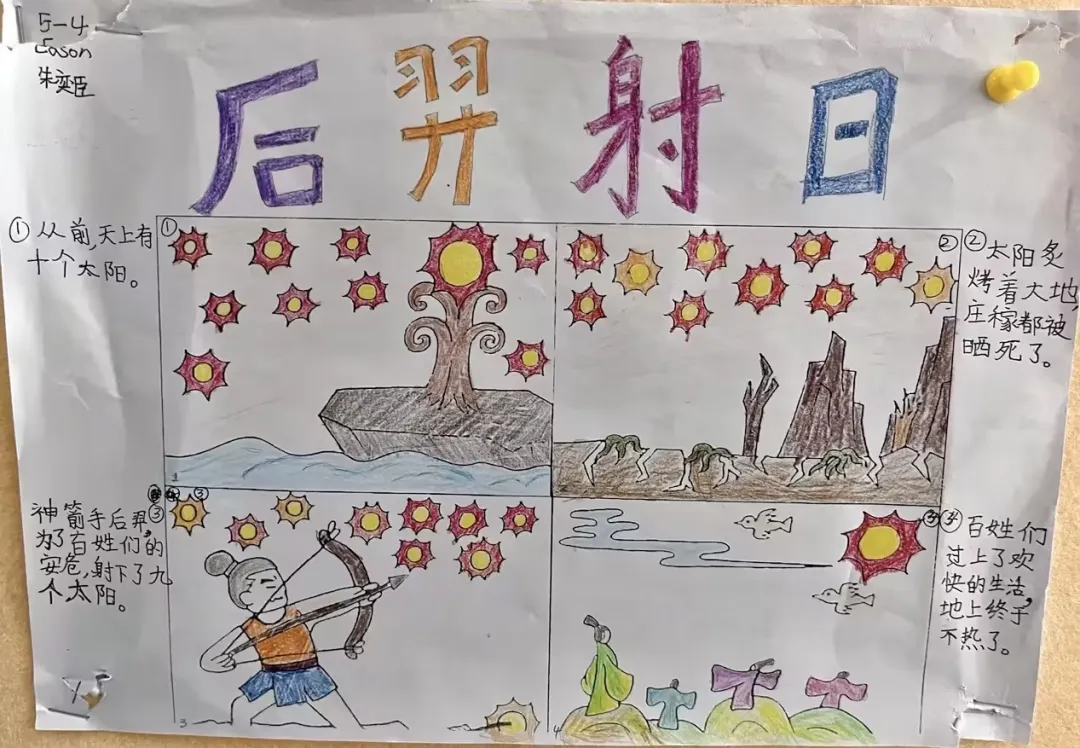 5-4
Eason
朱奕臣
后羿射日
① 从前,天上有
十个太阳。
①
②
② 太阳炙
烤着大地,
庄稼都被
晒死了。
1
③
③
神箭手后羿
为了百姓们的
安危,射下了九
个太阳。
④ 百姓们
过上了欢
快的生活,
地上终于
不热了。
3
4